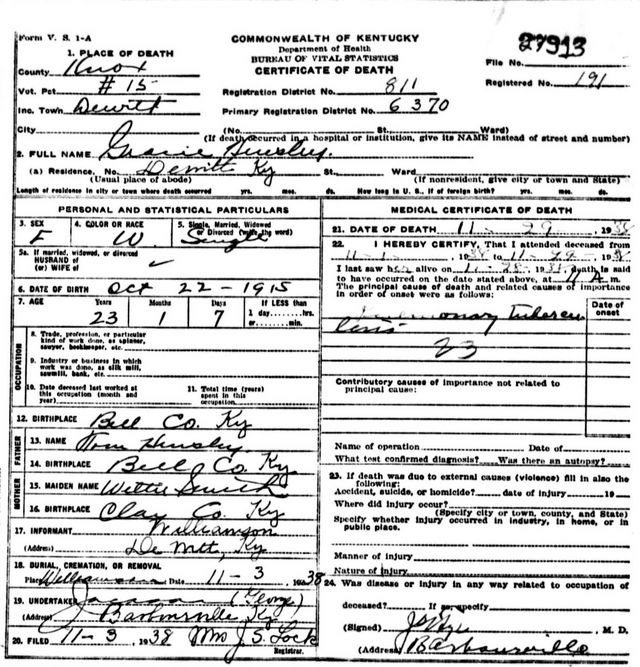 Form V. S. 1-A
COMMONWEALTH OF KENTUCKY
Department of Health
BUREAU OF VITAL STATISTICS
CERTIFICATE OF DEATH
27913
File No.
Registered No. 191
1. PLACE OF DEATH
County Knox
Vot. Pct # 15
Inc. Town Dewitt
City
Registration District No. 811
Primary Registration District No. 6370
(No. St. Ward)
(If death occurred in a hospital or institution, give its NAME instead of street and number)
2. FULL NAME Gracie Hensley
(a) Residence, No. Dewitt Ky St., Ward
(Usual place of abode) (If nonresident, give city or town and State)
Length of residence in city or town where death occurred yrs. mos. ds. How long in U. S., if of foreign birth? yrs. mos. ds.
PERSONAL AND STATISTICAL PARTICULARS
3. SEX F
4. COLOR OR RACE W
5. Single, Married, Widowed or Divorced (write the word) Single
5a. If married, widowed, or divorced
HUSBAND of
(or) WIFE of
6. DATE OF BIRTH Oct 22-1915
7. AGE Years 23 Months 1 Days 7 If LESS than
1 day,....hrs.
or......min.
OCCUPATION
8. Trade, profession, or particular
kind of work done, as spinner,
sawyer, bookkeeper, etc.
9. Industry or business in which
work was done, as silk mill,
sawmill, bank, etc.
10. Date deceased last worked at
this occupation (month and
year)
11. Total time (years)
spent in this
occupation
12. BIRTHPLACE Bell Co. Ky
FATHER
13. NAME Tom Hensley
14. BIRTHPLACE Bell Co. Ky
MOTHER
15. MAIDEN NAME Smith
16. BIRTHPLACE Clay Co. Ky
17. INFORMANT Williamson
(Address) De Witt, Ky
18. BURIAL, CREMATION, OR REMOVAL
Place Date 11-3 1938
19. UNDERTAKER (George)
(Address) Barbourville Ky
20. FILED 11-3, 1938 Mrs J. S. Lock
Registrar.
MEDICAL CERTIFICATE OF DEATH
21. DATE OF DEATH 11-29, 1938
22. I HEREBY CERTIFY, That I attended deceased from
11-1, 1938 to 11-29-38
I last saw her alive on 11-28, 1938, death is said
to have occurred on the date stated above, at A.m.
The principal cause of death and related causes of importance
in order of onset were as follows:
Date of onset
Pulmonary Tubercu
losis
23
Contributory causes of importance not related to
principal cause:
Name of operation Date of
What test confirmed diagnosis? Was there an autopsy?
23. If death was due to external causes (violence) fill in also the
following:
Accident, suicide, or homicide? date of injury 19
Where did injury occur?
(Specify city or town, county, and State)
Specify whether injury occurred in industry, in home, or in
public place.
Manner of injury
Nature of injury
24. Was disease or injury in any way related to occupation of
deceased? If so, specify
(Signed) M. D.
(Address) Barbourville